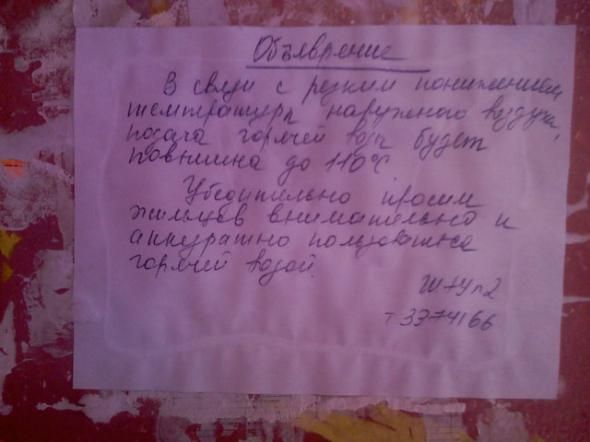 Объявление
В связи с резким понижением
температуры наружного воздуха,
подача горячей воды будет
повышена до 110°С
Убедительно просим
жильцов внимательно и
аккуратно пользоваться
горячей водой.
т 3374166